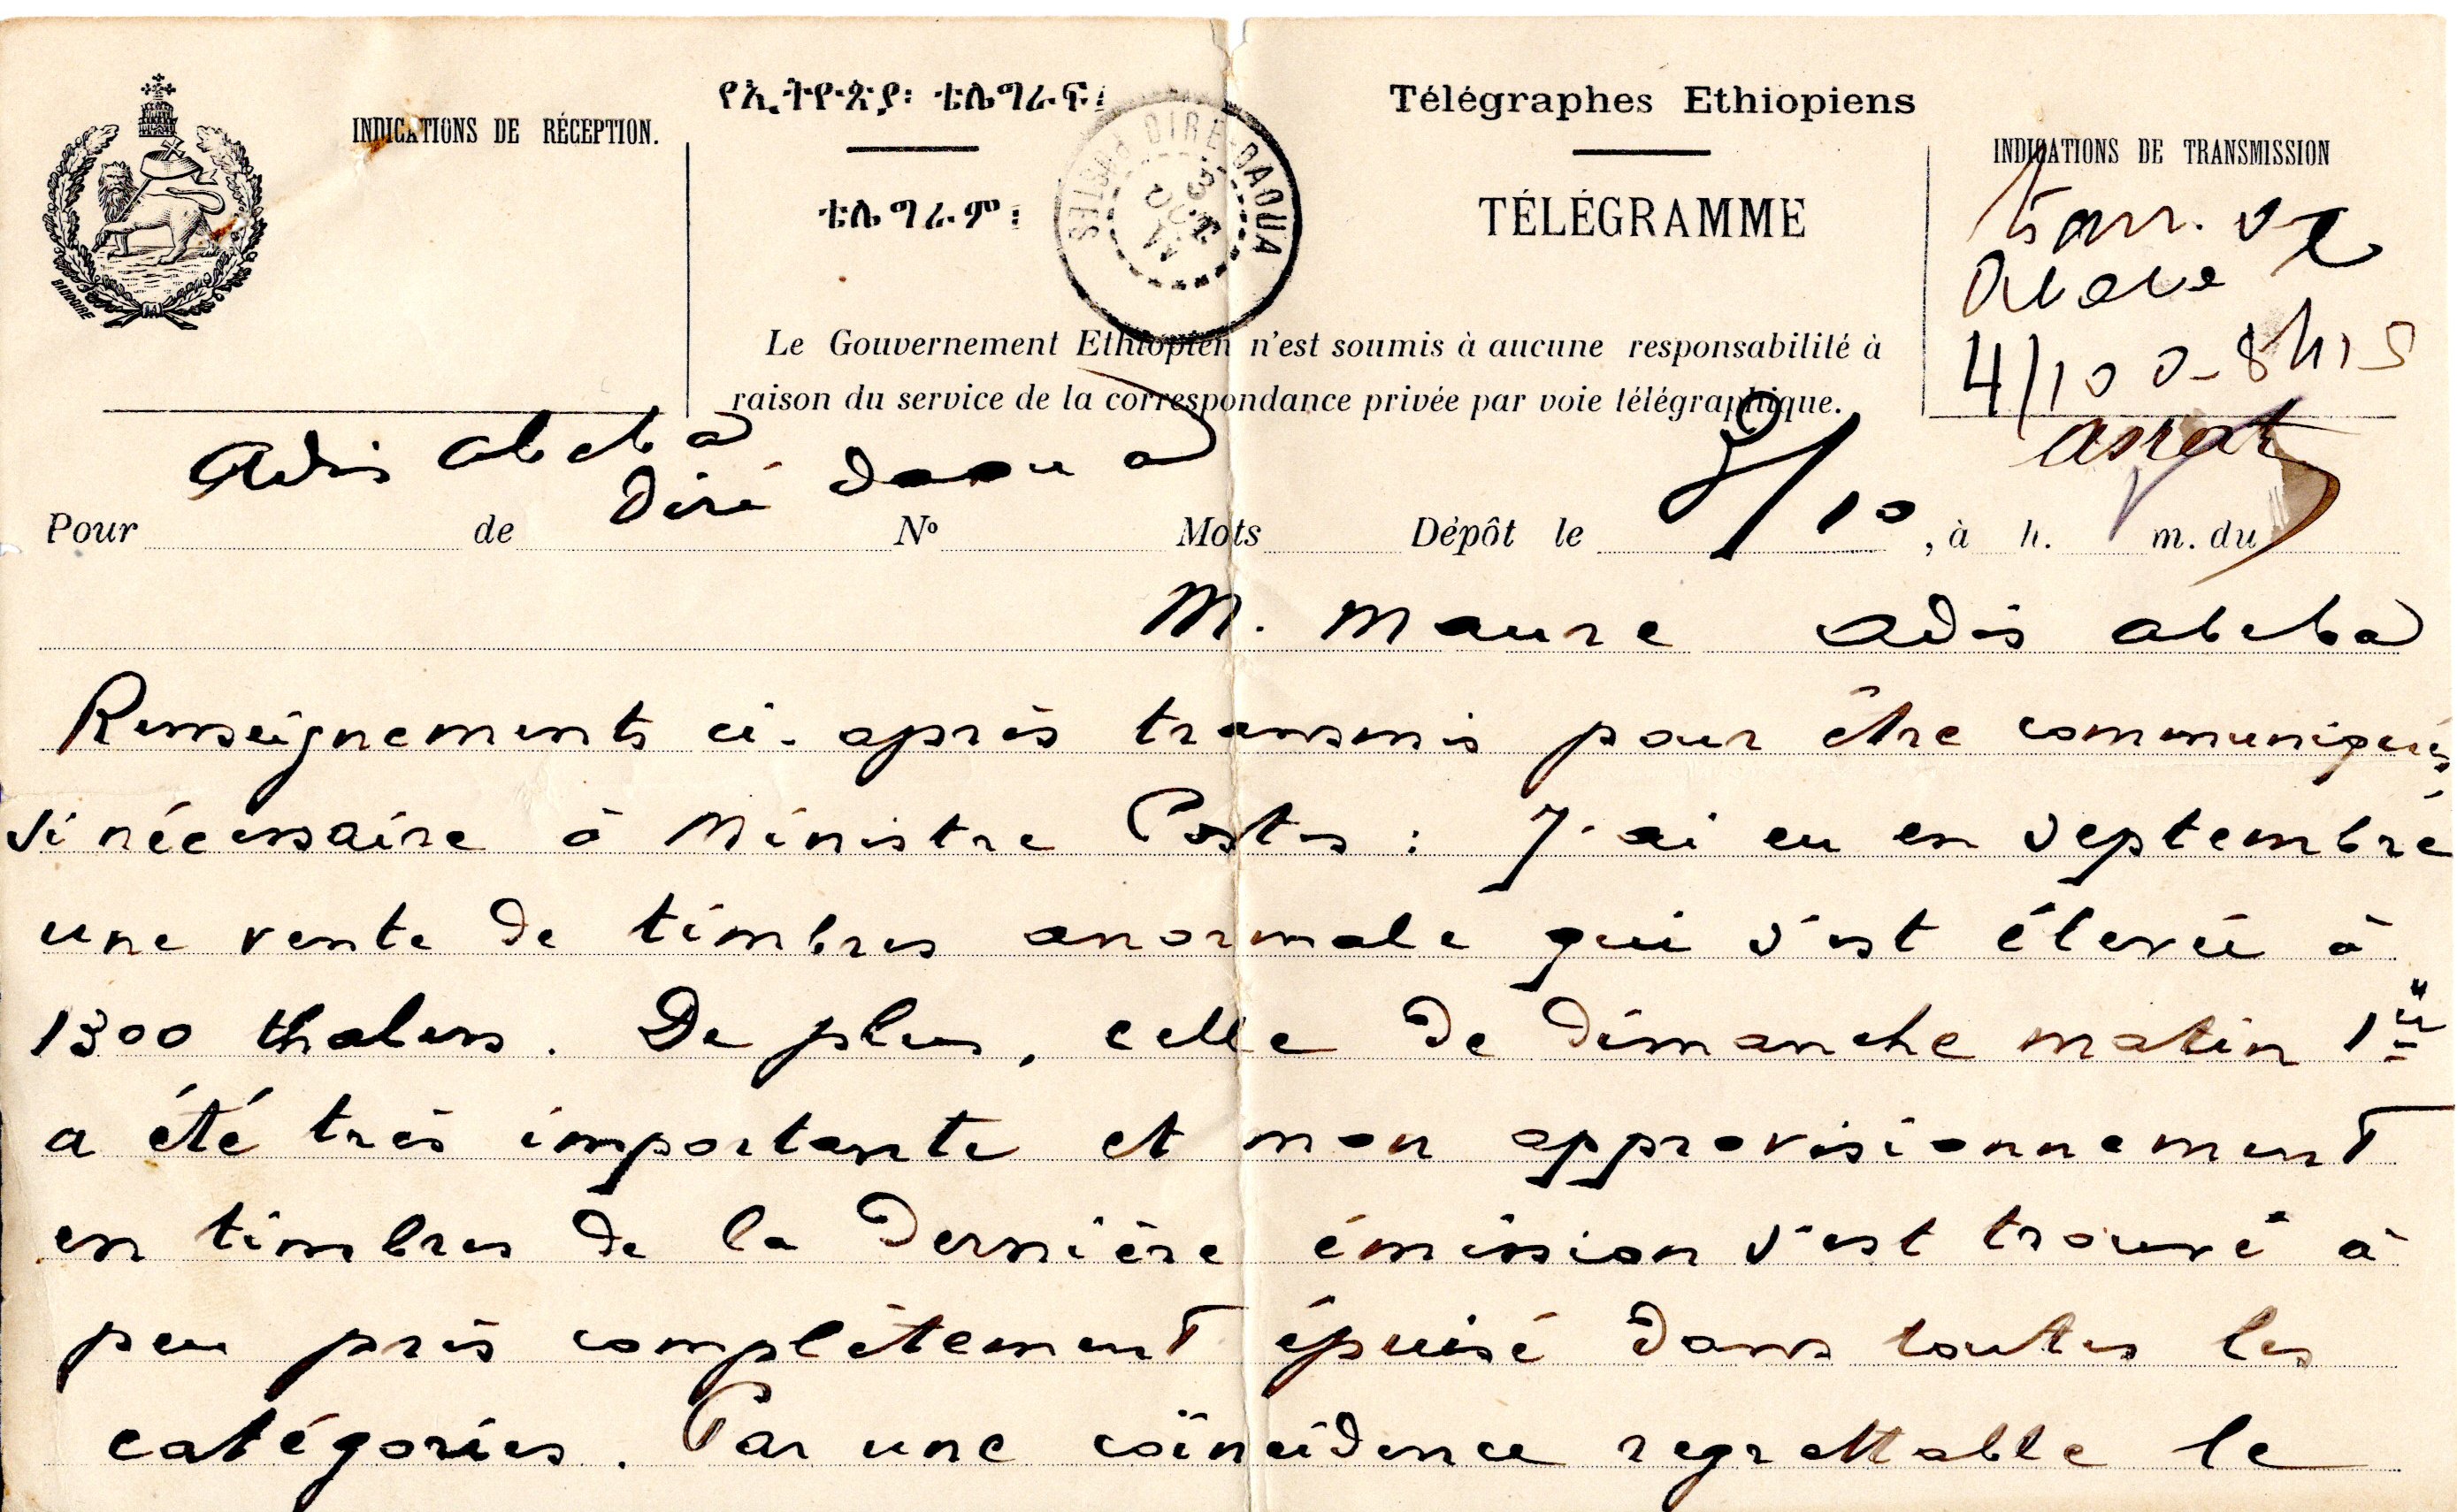 INDICATIONS DE RÉCEPTION.
የኢትዮጵያ፡ ቴሌግራፍ፤
ቴሌግራም፤
POSTES DIRE-DAOUA
3
OCT
11
Télégraphes Ethiopiens
TÉLÉGRAMME
INDICATIONS DE TRANSMISSION
4/10 8h15
Le Gouvernement Ethiopien n'est soumis à aucune responsabilité à
raison du service de la correspondance privée par voie télégraphique.
Pour Adis abeba de Diré daoua No Mots Dépôt le 3/10, à h. m. du
M. Maure Adis abeba
Renseignements ci-après transmis pour être communiqués
si nécessaire à Ministre Postes : J'ai eu en septembre
une vente de timbres anormale qui s'est élevée à
1300 thalers. De plus, celle de dimanche matin 1er
a été très importante et mon approvisionnement
en timbres de la dernière émission s'est trouvé à
peu près complètement épuisé dans toutes les
catégories. Par une coïncidence regrettable le